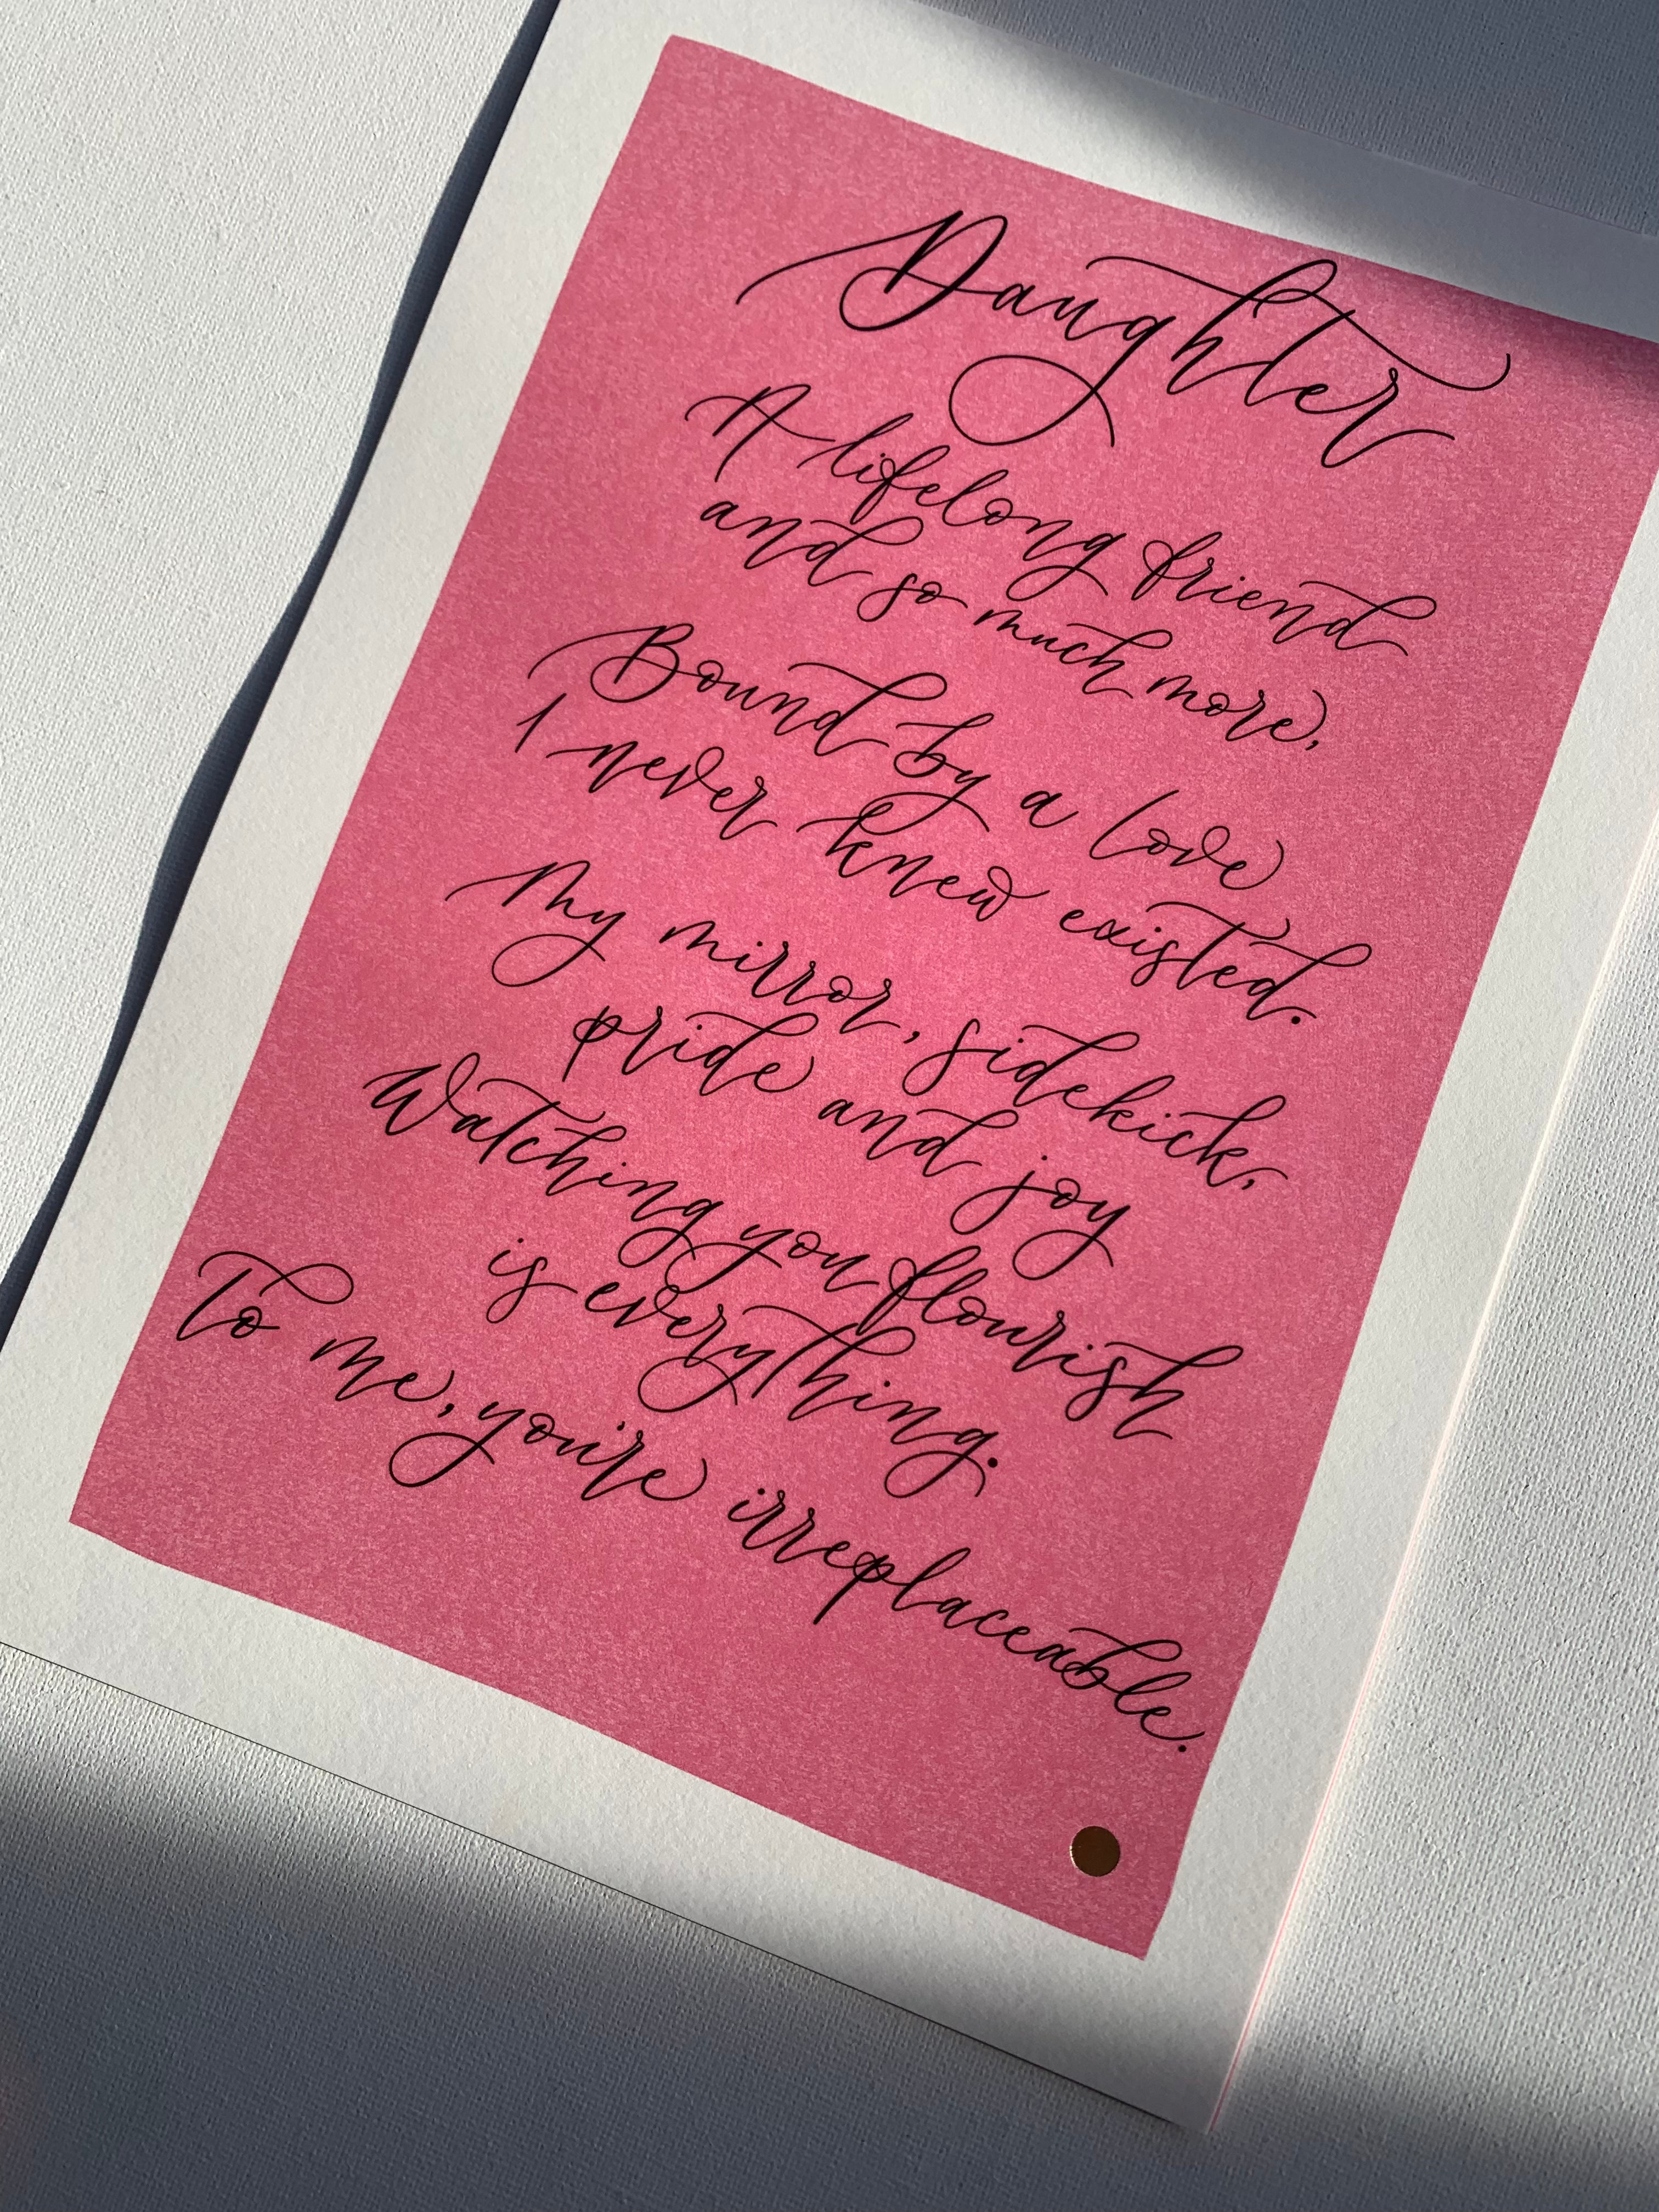 Daughter
A lifelong friend
and so much more,
Bound by a love
I never knew existed.
My mirror, sidekick,
pride and joy
Watching you flourish
is everything.
To me, you're irreplaceable.